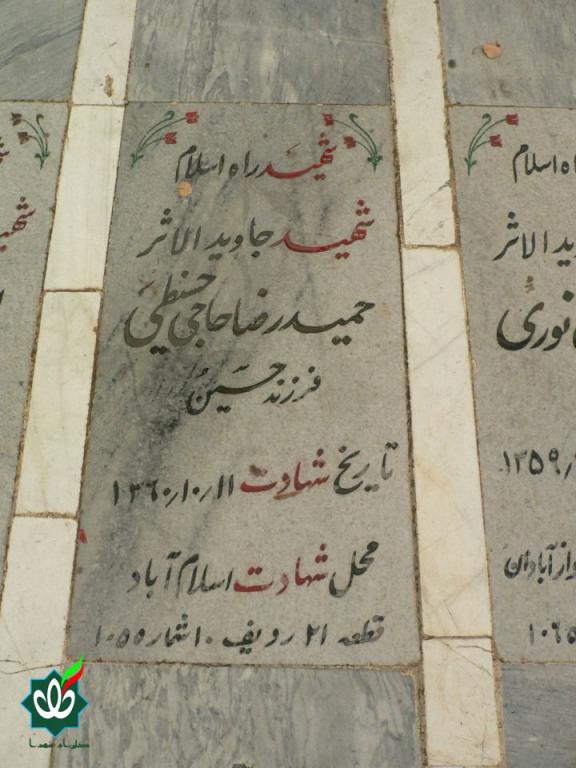 شهید راه اسلام
شهید جاوید الاثر
حمیدرضا حاجی حسنطی
فرزند حسین
تاریخ شهادت ۱۳۶۰٫۱۰٫۱۱
محل شهادت اسلام آباد
قطعه ۲۱ ردیف ۱۰ شماره ۱۰۵۵
اه اسلام
ید الاثر
نوری
۱۳۵۹
واز آبادان
۱۰۶۵
شهید
گلزار شهدا